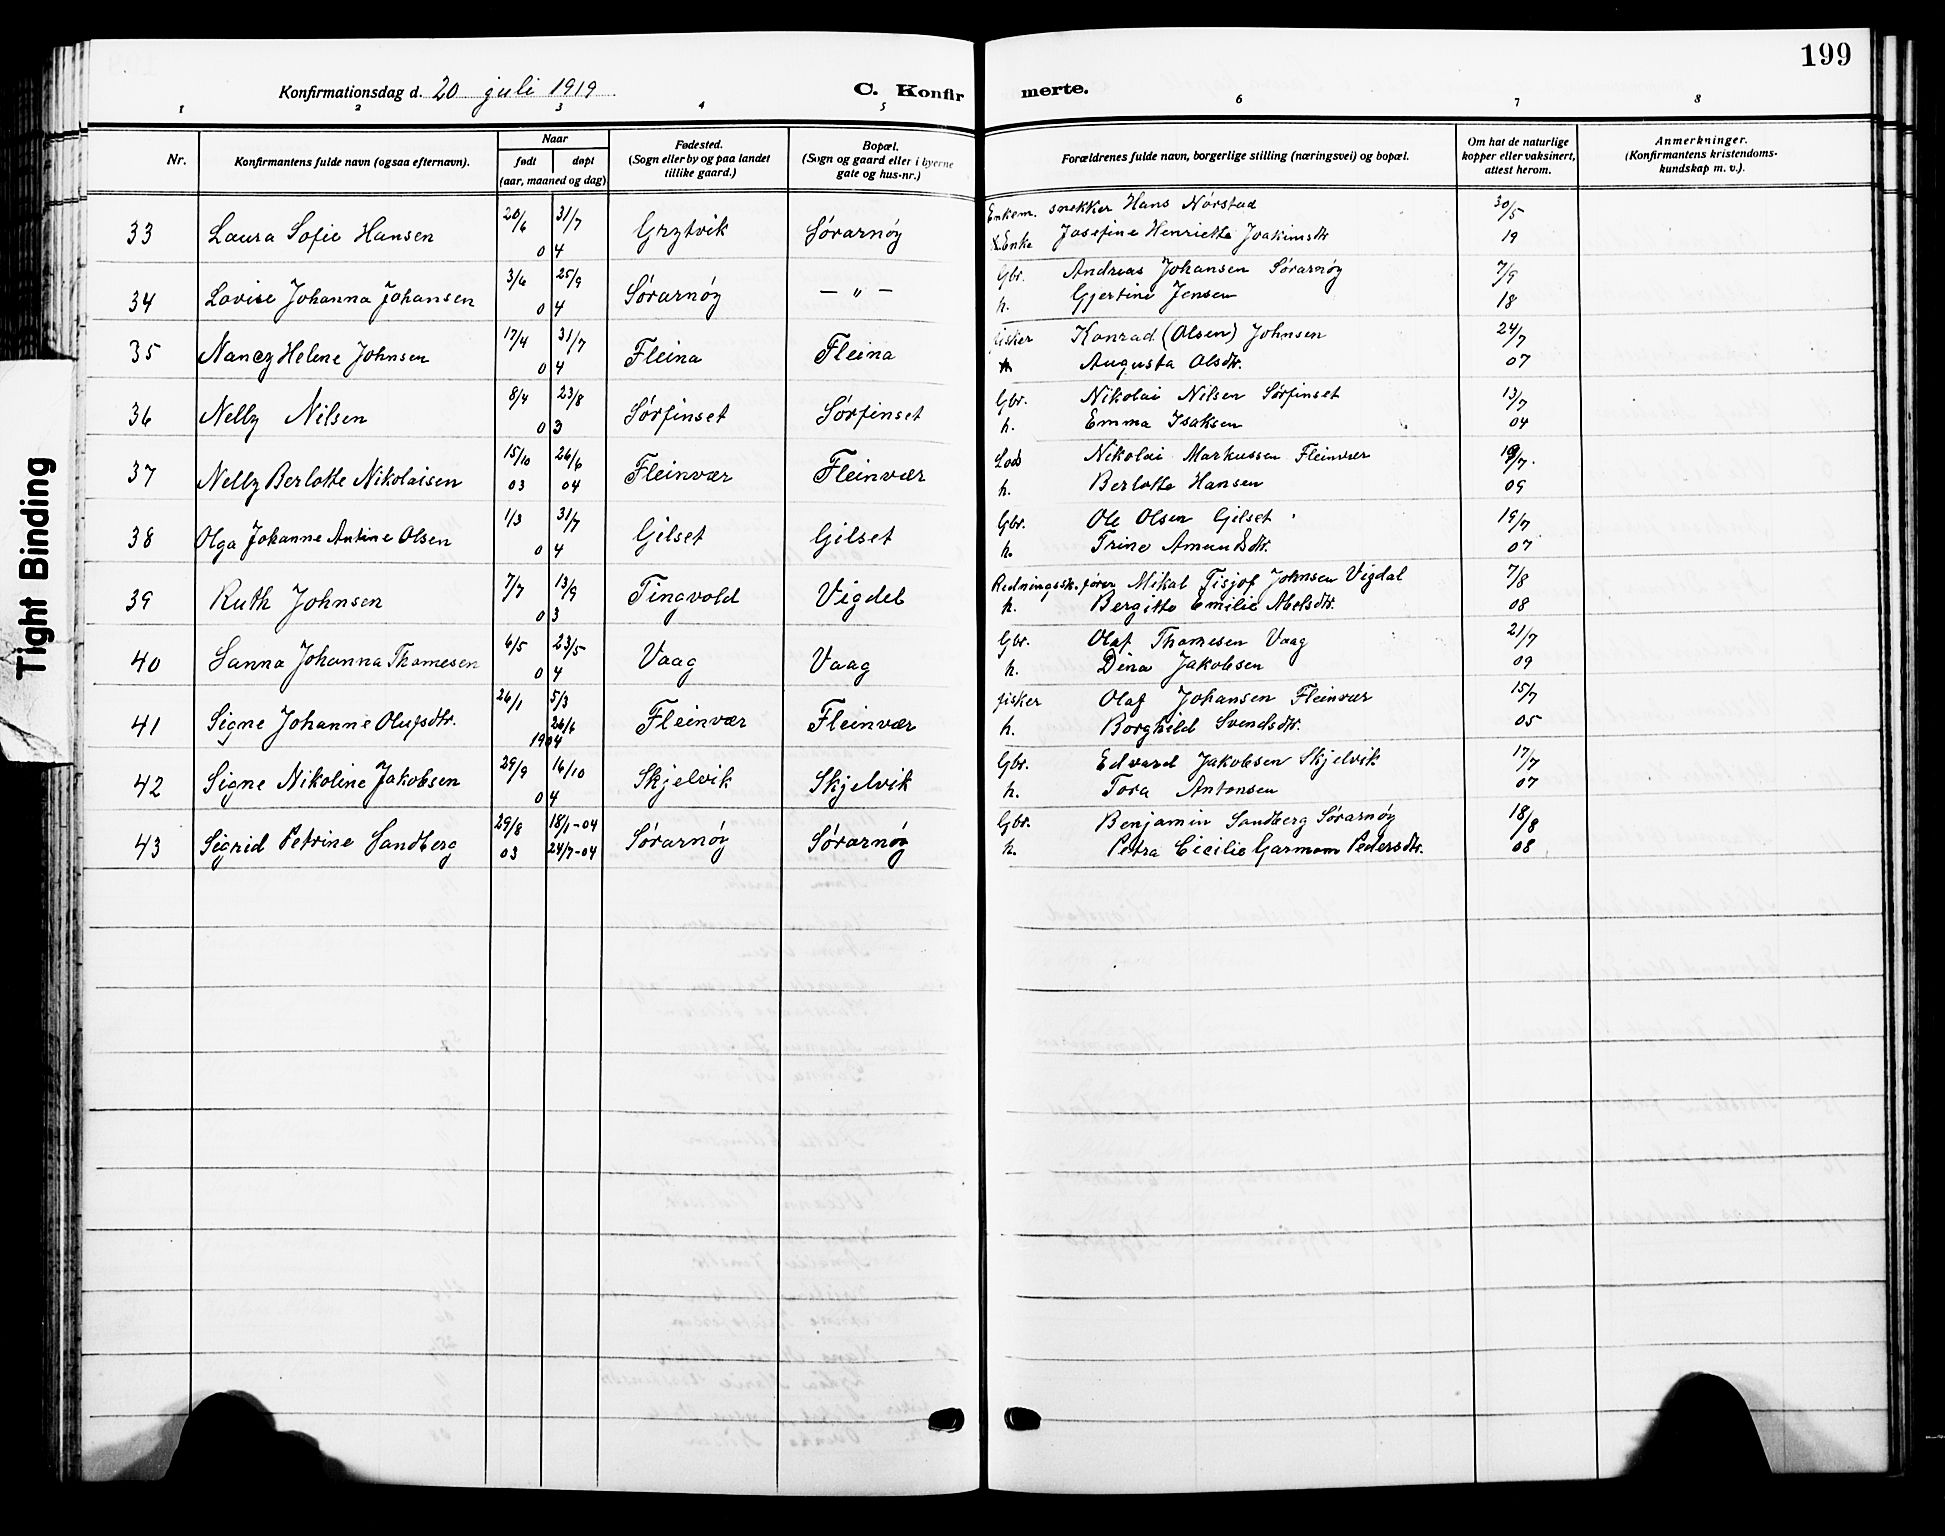 199
Konfirmationsdag d. 20 juli 1919
C. Konfirmerte.
1 2 3 4 5 6 7 8
Nr.
Konfirmantens fulde navn (ogsaa efternavn).
Naar
født
døpt
(aar, maaned og dag)
Fødested.
(Sogn eller by og paa landet
tillike gaard.)
Bopæl.
(Sogn og gaard eller i byerne
gate og hus-nr.)
Forældrenes fulde navn, borgerlige stilling (næringsvei) og bopæl.
Om hat de naturlige
kopper eller vaksinert,
attest herom.
Anmerkninger.
(Konfirmantens kristendoms-
kundskap m. v.).
33 Laura Sofie Hansen 20/6 31/7 04 Sørarnøy Enkem. snekker Hans Nørstad 30/5
Enke Josefine Henriette Joakimsdtr 19
34 Lovise Johanna Johansen 3/6 25/9 04 Sørarnøy — " — Gbr. Andreas Johansen Sørarnøy 7/9
h. Gjertine Jensen 18
35 Nancy Helene Johnsen 17/4 31/7 04 Fleina Fleina fisker Konrad (Olsen) Johnsen 24/7
Augusta Olsdtr. 07
36 Nelly Nilsen 8/4 23/8 03 Sørfinset Sørfinset Gbr. Nikolai Nilsen Sørfinset 13/7
h. Emma Isaksen 04
37 Nelly Berlotte Nikolaisen 15/10 03 26/6 04 Fleinvær Fleinvær Lods Nikolai Markussen Fleinvær
h. Berlotte Hansen 09
38 Olga Johanne Antine Olsen 1/3 31/7 04 Gilset Gilset Gbr. Ole Olsen Gilset 19/7
h. Trine Amundsdtr. 07
39 Ruth Johnsen 7/7 13/9 03 Tingvold Vigdel Redningssk.fører Mikal Johnsen Vigdal 7/8
h. Bergitte Emilie Abelsdtr. 08
40 Sanna Johanna Thomesen 6/5 23/5 04 Vaag Vaag Gbr. Olaf Thomesen Vaag 21/7
h. Dina Jakobsen 09
41 Signe Johanne Olufsdtr. 26/1 5/3 26/6 1904 Fleinvær Fleinvær fisker Olaf Johansen Fleinvær 15/7
h. Borghild Svendsdtr. 05
42 Signe Nikoline Jakobsen 29/9 16/10 04 Skjelvik Skjelvik Gbr. Edvard Jakobsen Skjelvik 17/7
h. Tora Antonsen 07
43 Sigrid Petrine Sandberg 29/8 03 18/1-04 24/7-04 Sørarnøy Sørarnøy Gbr. Benjamin Sandberg Sørarnøy 18/8
h. Petra Cicilie Garmann Pedersdtr. 08
Tight Binding